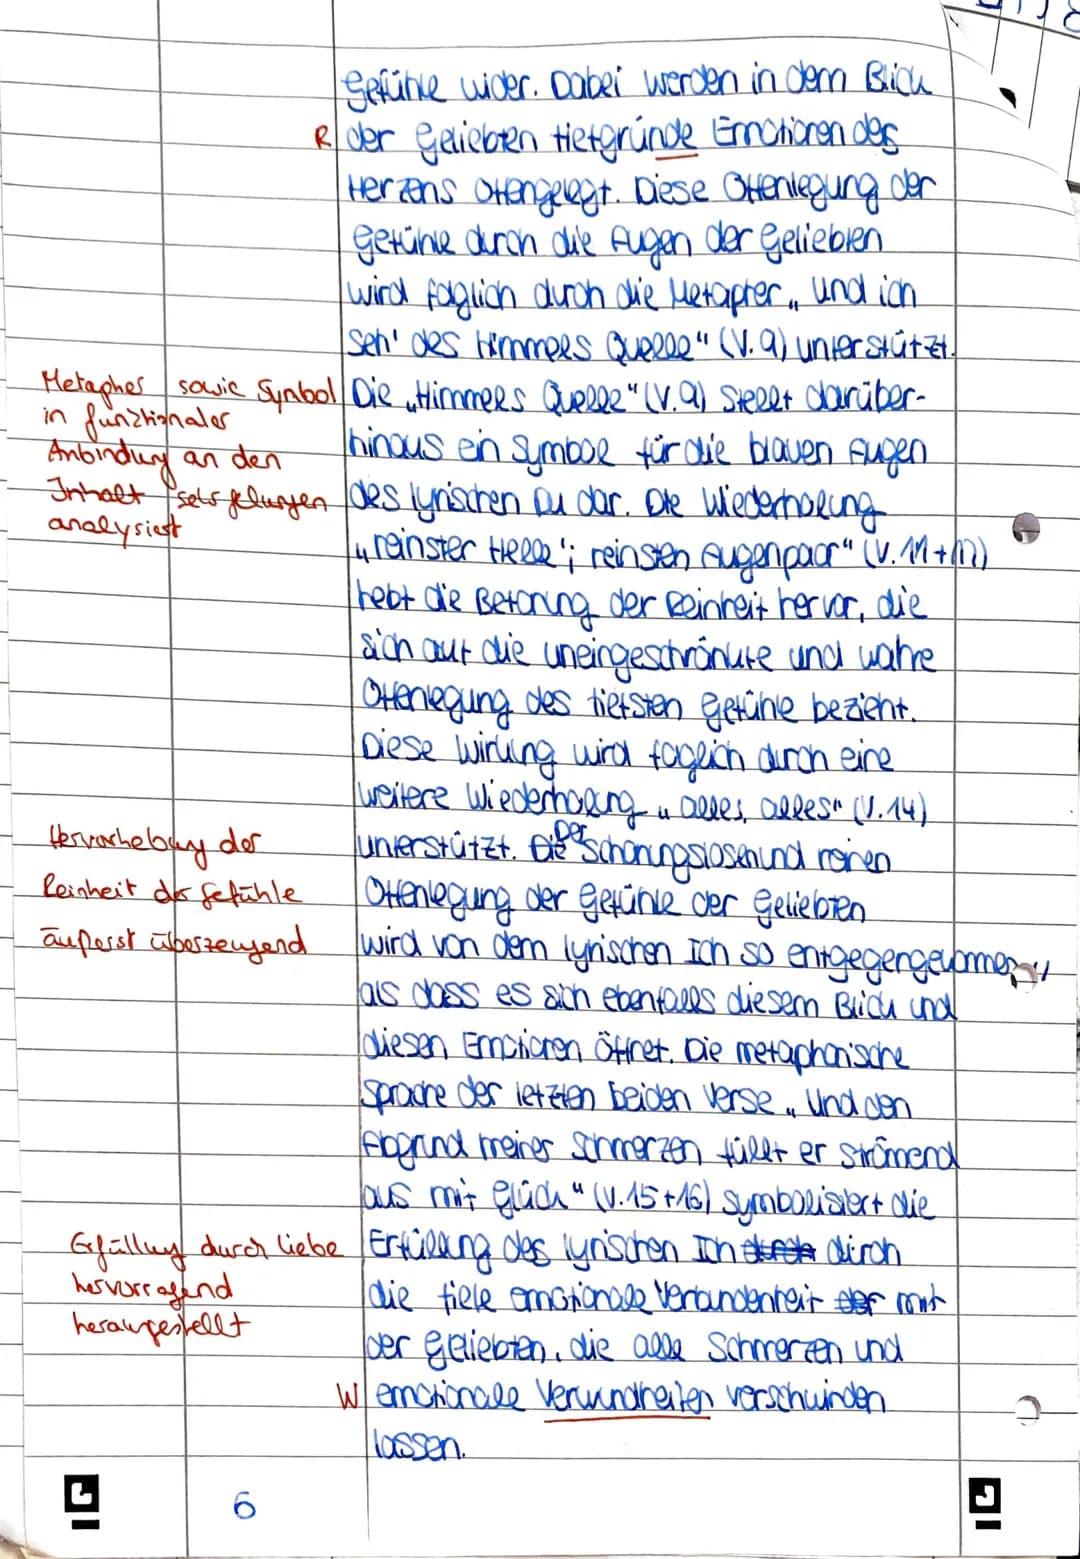 Gefühle wider. Dabei werden in dem Blick
R der Geliebten tiefgründe Emotionen des
Herzens offengelegt. Diese Offenlegung der
Gefühle durch die Augen der Geliebten
wird folglich durch die Metapher „und ich
seh' des Himmels Quelle" (V. 9) unterstützt.
Metapher sowie Symbol
in funktionaler
Anbindung an den
Inhalt sehr gelungen
analysiert
Die „Himmels Quelle" (V. 9) stellt darüber-
hinaus ein Symbol für die blauen Augen
des lyrischen Du dar. Die Wiederholung
„reinster Helle"; reinsten Augenpaar" (V. 11+12)
hebt die Betonung der Reinheit hervor, die
sich auf die uneingeschränkte und wahre
Offenlegung des tiefsten Gefühle bezieht.
Diese Wirkung wird folglich durch eine
weitere Wiederholung „alles, alles" (V. 14)
Hervorhebung der
Reinheit der Gefühle
äußerst überzeugend
unterstützt. Die Der schonungslosen und reinen
Offenlegung der Gefühle der Geliebten
wird von dem lyrischen Ich so entgegengekommen,
als dass es sich ebenfalls diesem Blick und
diesen Emotionen öffnet. Die metaphorische
Sprache der letzten beiden Verse „Und den
Abgrund meiner Schmerzen füllt er strömend
aus mit Glück" (V. 15+16) symbolisiert die
Erfüllung durch Liebe
hervorragend
herausgestellt
Erfüllung des lyrischen Ich durch durch
die tiefe emotionale Verbundenheit der mit
der Geliebten, die alle Schmerzen und
W emotionale Verwundheiten verschwinden
lassen.
6